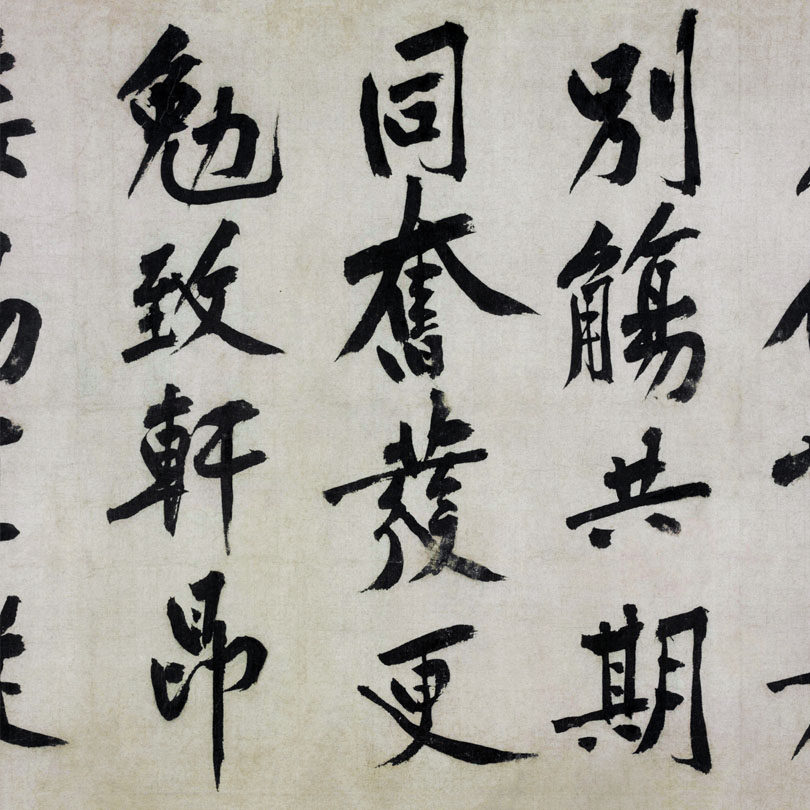 別觴共期
同奮發更
勉致軒昂